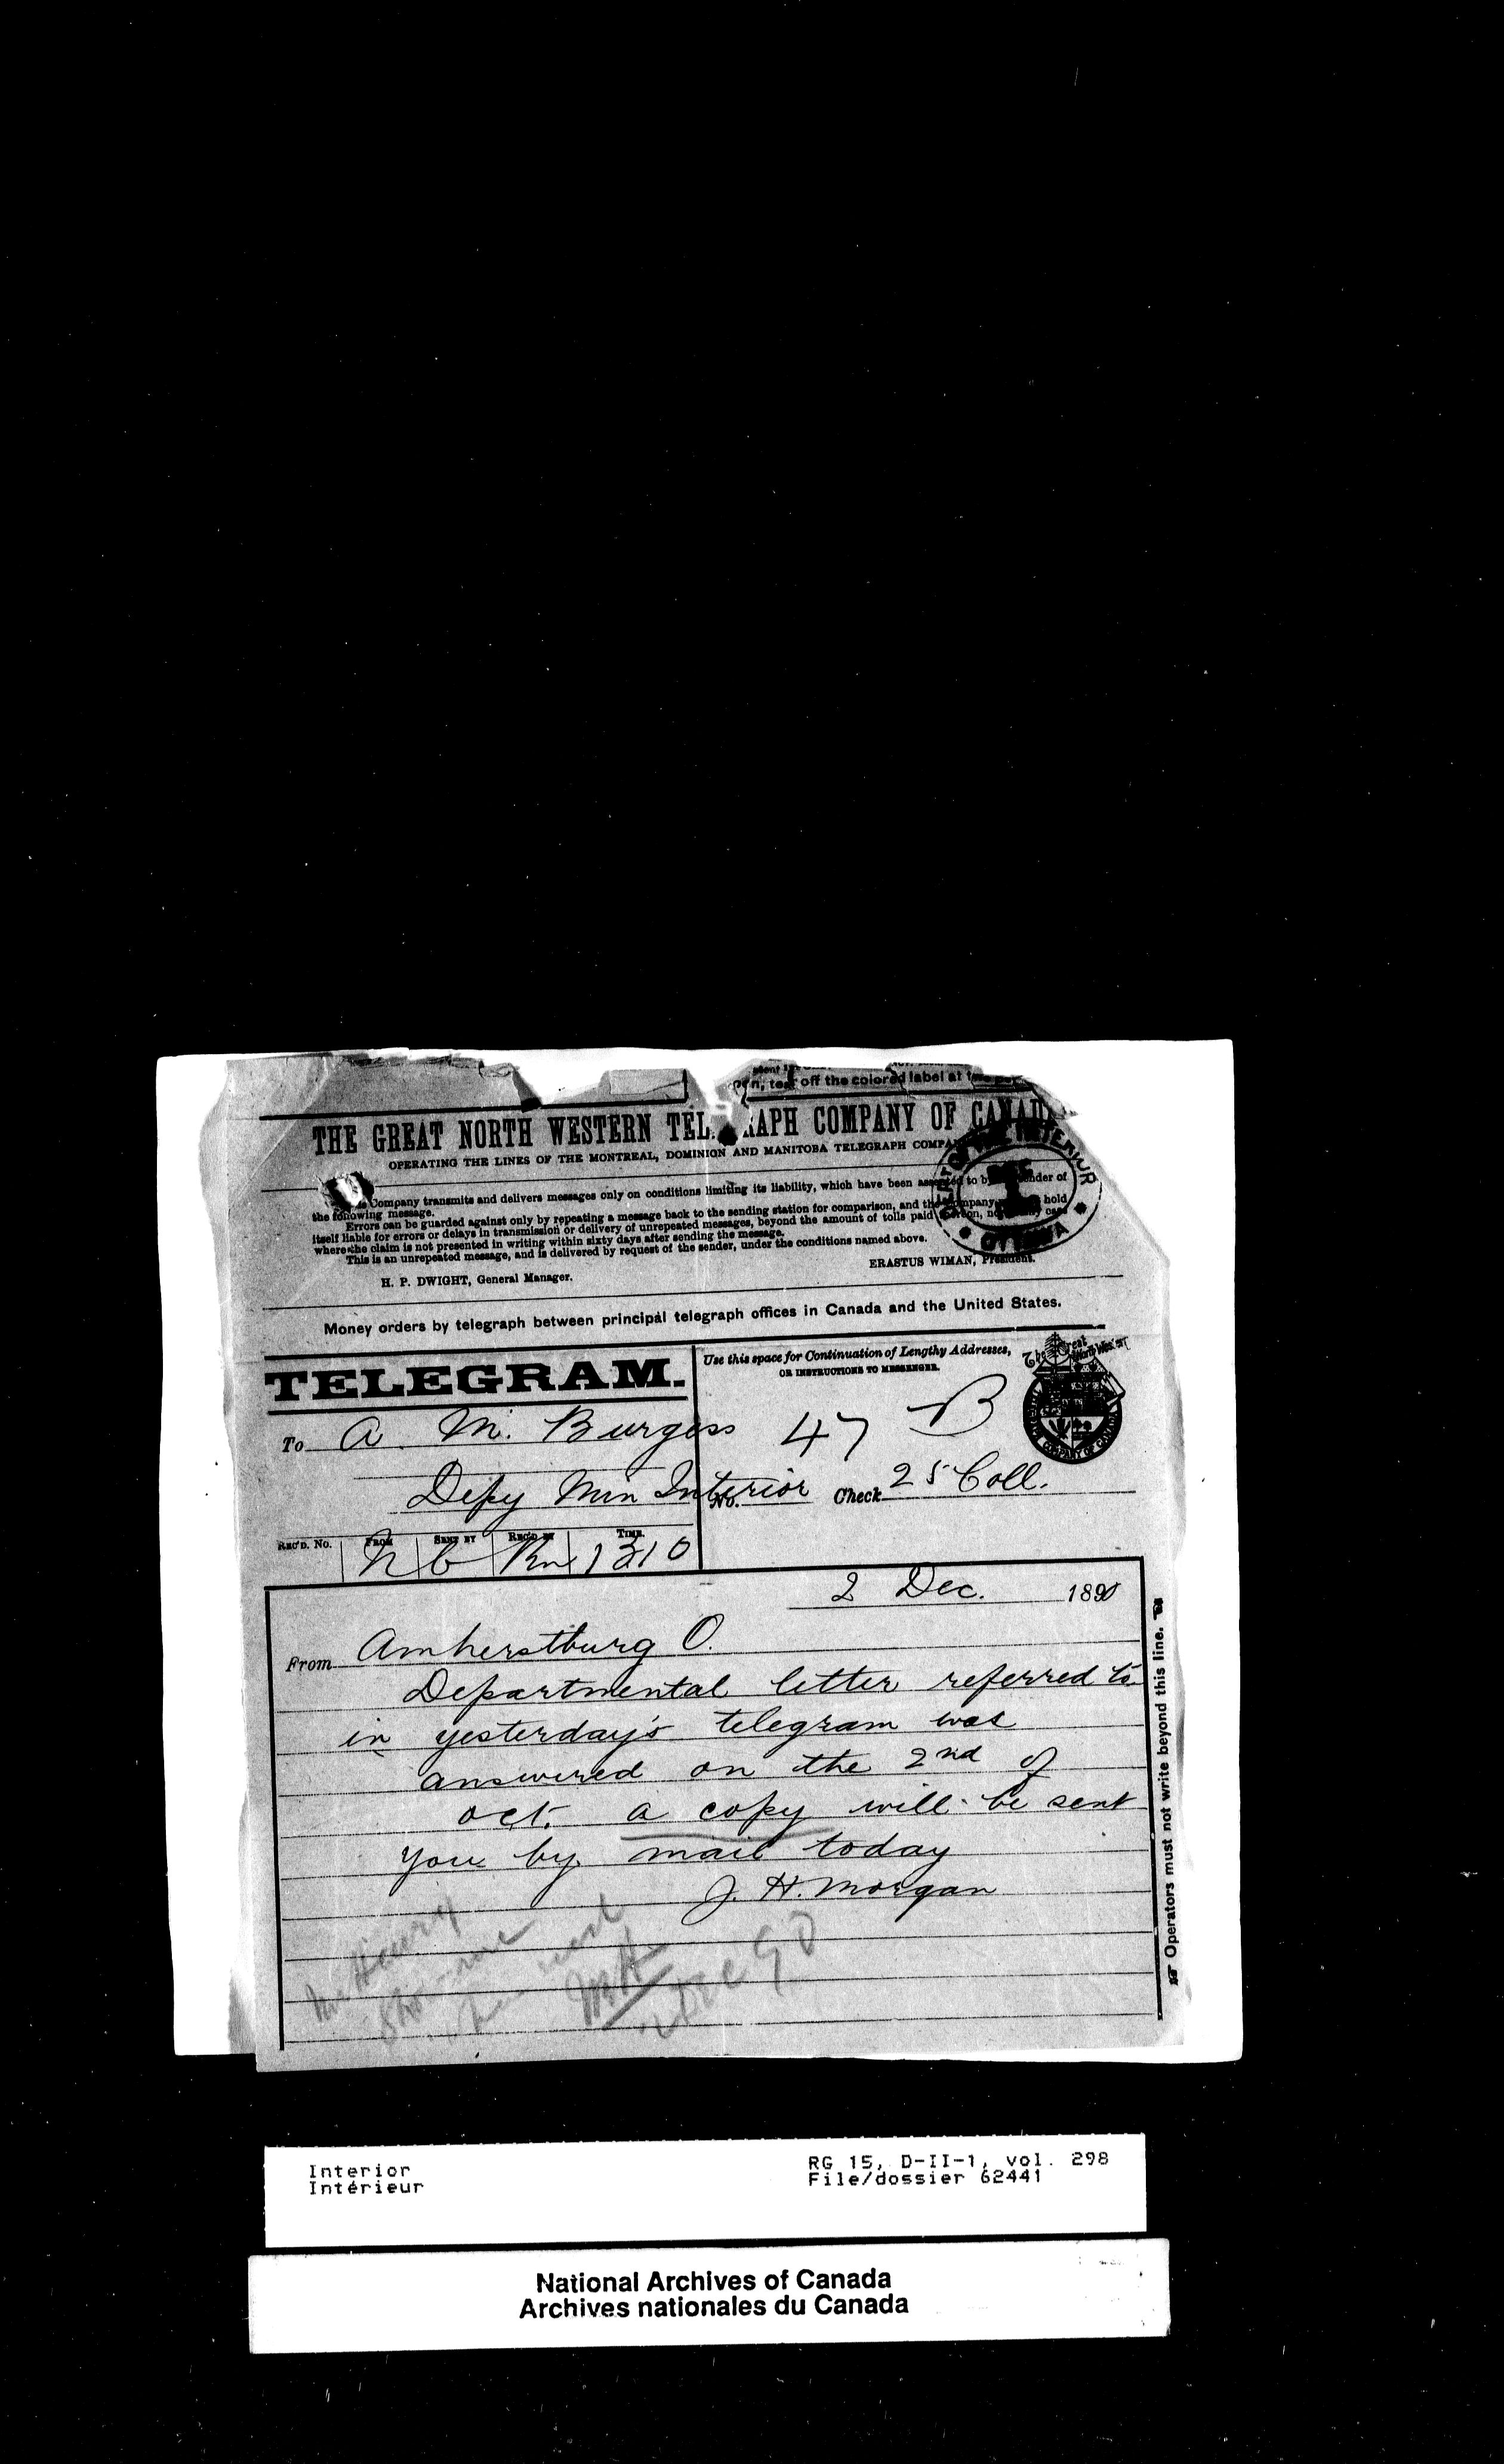 pen, tear off the colored label at
THE GREAT NORTH WESTERN TEL RAPH COMPANY OF CANAD
OPERATING THE LINES OF THE MONTREAL, DOMINION AND MANITOBA TELEGRAPH COMPA
Company transmits and delivers messages only on conditions limiting its liability, which have been assented to by nder of
the following message.
Errors can be guarded against only by repeating a message back to the sending station for comparison, and the company hold
itself liable for errors or delays in transmission or delivery of unrepeated messages, beyond the amount of tolls paid thereon, no any case
where the claim is not presented in writing within sixty days after sending the message.
This is an unrepeated message, and is delivered by request of the sender, under the conditions named above.
ERASTUS WIMAN, President.
H. P. DWIGHT, General Manager.
DEPT OF THE INTERIOR
DEC
OTTAWA
Money orders by telegraph between principal telegraph offices in Canada and the United States.
TELEGRAM.
Use this space for Continuation of Lengthy Addresses,
OR INSTRUCTIONS TO MESSENGER.
The Great North Western
COMPANY OF CANADA
To A. M. Burgess 47 B
Depy Min Interior
No. Check 25 Coll.
REC'D. No. FROM SENT BY REC'D BY TIME.
N 1310
2 Dec. 1890
From Amherstburg O.
Departmental letter referred to
in yesterday's telegram was
answered on the 2nd of
oct. a copy will be sent
you by mail today
J. H. Morgan
Operators must not write beyond this line.
Interior
Intérieur
RG 15, D-II-1, vol. 298
File/dossier 62441
National Archives of Canada
Archives nationales du Canada